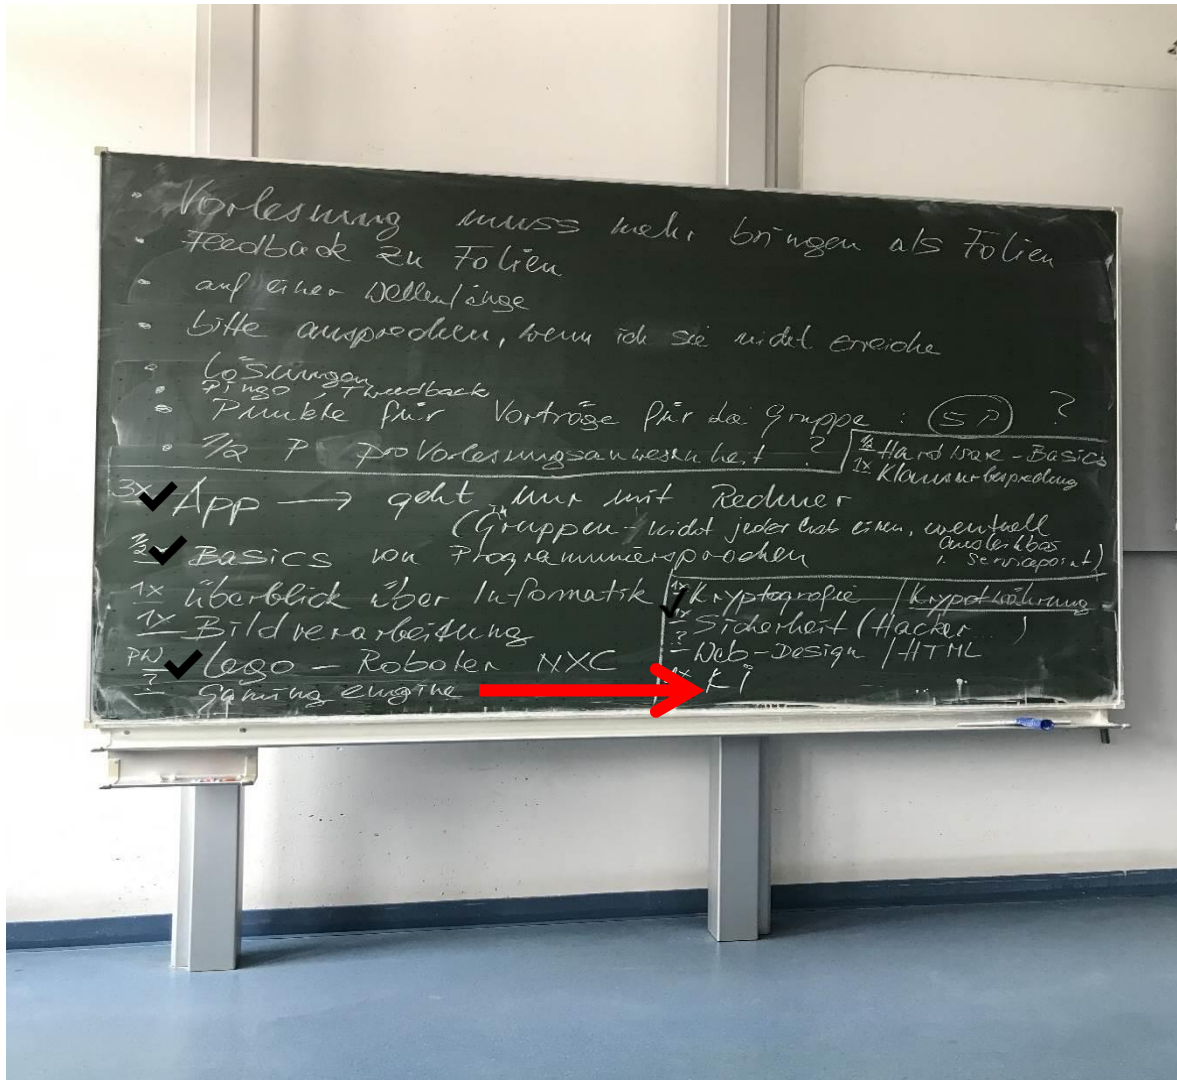 • Vorlesung muss mehr bringen als Folien
• Feedback zu Folien
• auf einer Wellenlänge
• bitte ansprechen, wenn ich sie nicht erreiche
• Lösungen
• Pingo, Tweedback
• Punkte für Vorträge für die Gruppe : 5 P ?
• 1/2 P pro Vorlesungsanwesenheit ?
Hardware - Basics
1x Klausurbesprechung
3x App → geht nur mit Rechner
(in Gruppen - nicht jeder hat einen, eventuell
ausleihbar
i. Servicepoint)
Basics von Programmiersprachen
1x überblick über Informatik
1x Bildverarbeitung
PW Lego - Roboter NXC
? Gaming engine
1x Kryptografie / Kryptowährung
1x Sicherheit (Hacker ... )
? Web-Design / HTML
1x Ki